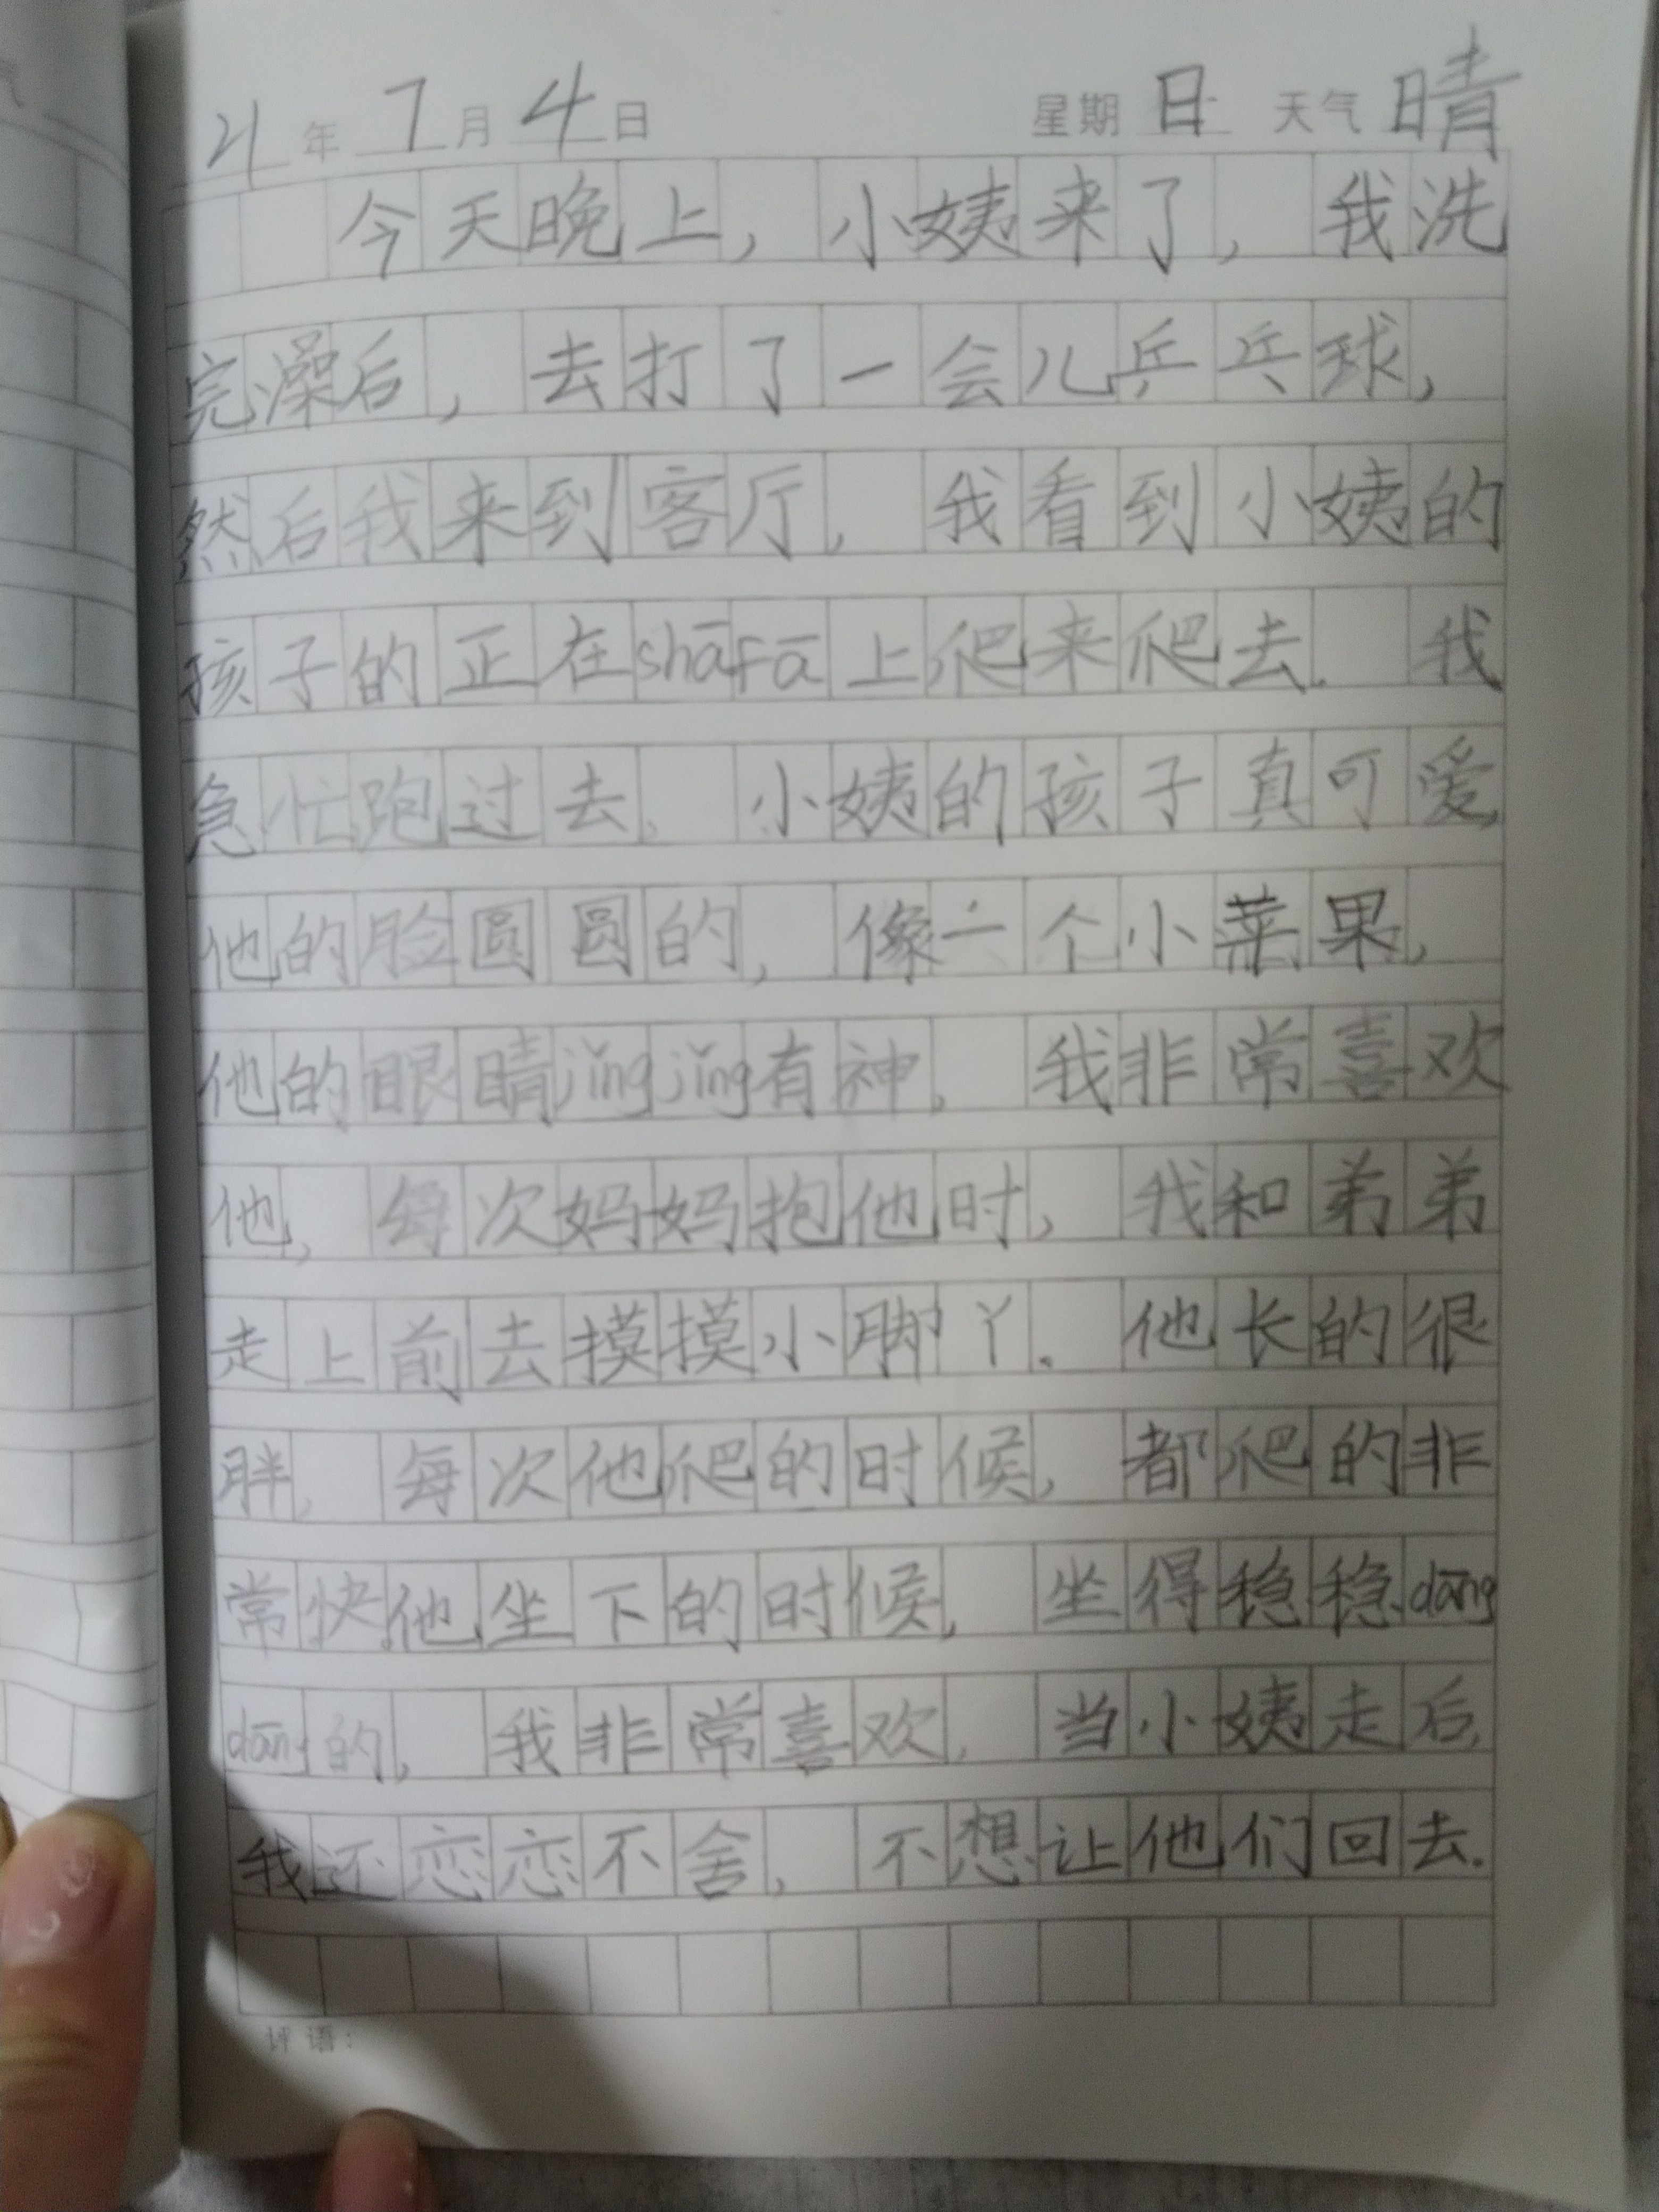 21年7月4日 星期日 天气晴
今天晚上，小姨来了，我洗
完澡后，去打了一会儿乒乓球，
然后我来到客厅，我看到小姨的
孩子的正在shāfā上爬来爬去。我
急忙跑过去。小姨的孩子真可爱，
他的脸圆圆的，像一个小苹果，
他的眼睛jǐngjǐng有神。我非常喜欢
他，每次妈妈抱他时，我和弟弟
走上前去摸摸小脚丫。他长的很
胖，每次他爬的时候，都爬的非
常快，他坐下的时候，坐得稳稳dāng
dāng的，我非常喜欢，当小姨走后，
我还恋恋不舍，不想让他们回去.
评语：